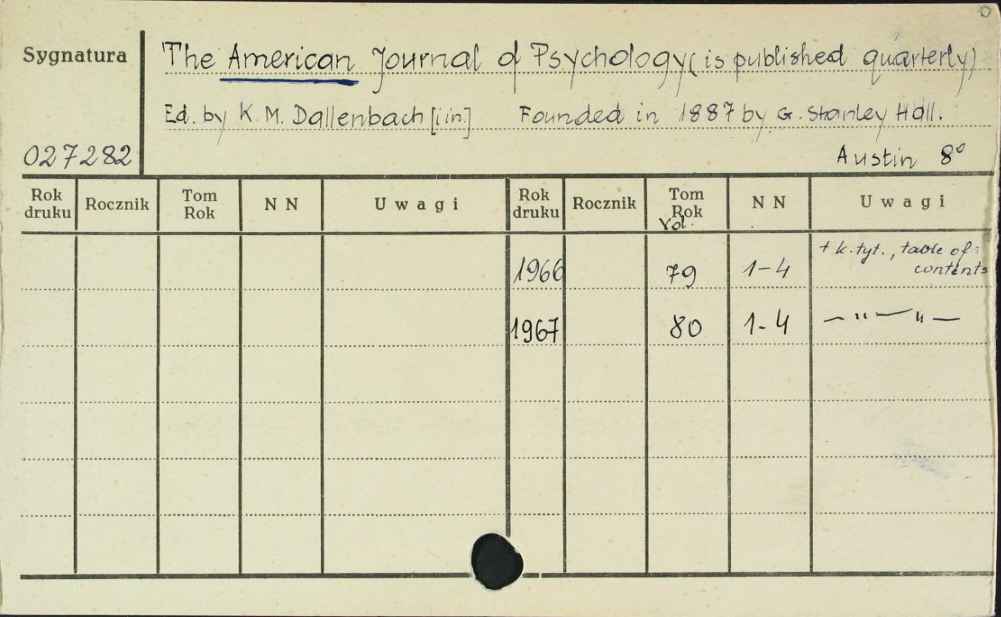 Sygnatura
The American Journal of Psychology (is published quarterly)
Ed. by K. M. Dallenbach [i in.] Founded in 1887 by G. Stanley Hall.
027282 Austin 8°
Rok druku Rocznik Tom Rok NN Uwagi Rok druku Rocznik Tom Rok Vol. NN Uwagi
1966 79 1-4 + k. tyt., table of contents
1967 80 1-4 — " — " —